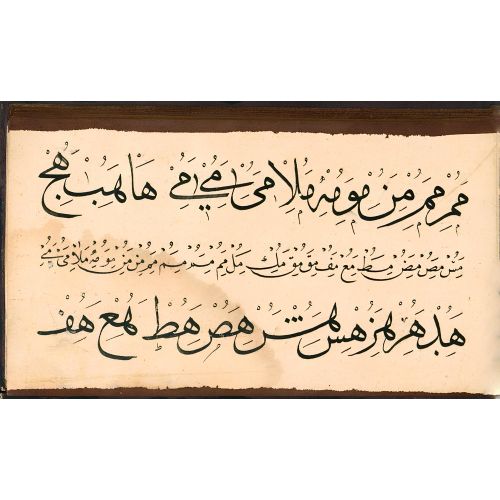 مم ممم من مو مه ملا مى مى مى ها هب هج
مس مص مض مط مع مف مق مك مل مم من مو مه ملا مى مى
هد هر هز هس هش هص هط هع هف